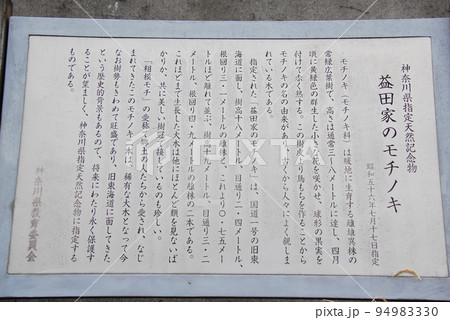 神奈川県指定天然記念物
益田家のモチノキ
昭和五十六年七月十七日指定
モチノキ(モチノキ科)は暖地に生育する雌雄異株の
常緑広葉樹で、高さは通常三~八メートルに達し、四月
頃に黄緑色の群生した小さな花を咲かせ、球形の果実を
付けて赤く熟する。この樹皮より鳥もちを作ることから
モチノキの名の由来があり、古くから人々によく親しま
れている木である。
指定された「益田家のモチノキ」は、国道一号の旧東
海道に面し、樹高十八メートル、目通り二・四メートル、
根回り三・一メートルの雄株と、これより〇・七五メー
トルほど離れて並ぶ、樹高十九メートル、目通り三・二
メートル、根回り四・九メートルの雌株の二本である。
これほどまで生長した大木は他にほとんど類を見ないば
かりか、共に美しい樹冠を接しているのも珍しい。
「相模モチ」の愛称で郷土の人たちから愛され、なじ
まれてきたこのモチノキ二本は、稀有な大木となって今
なお樹勢もきわめて旺盛であり、旧東海道に面してきた
という歴史的背景もあるので、将来にわたり永く保護す
ることが望ましく、神奈川県指定天然記念物に指定する
ものである。
神奈川県教育委員会
94983330